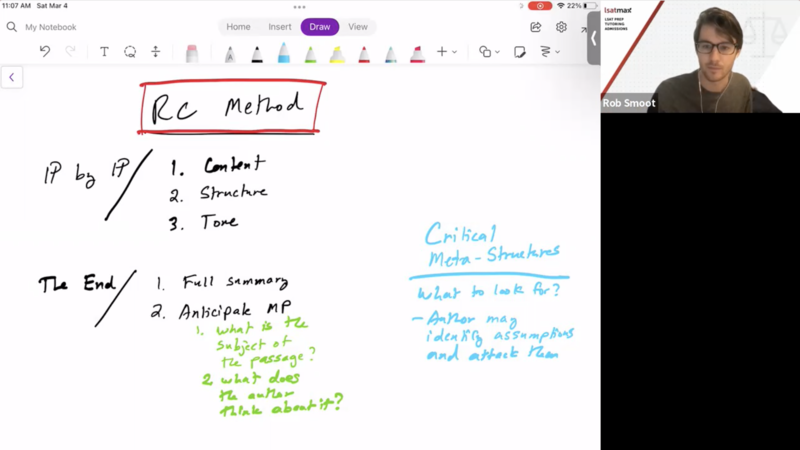 11:07 AM Sat Mar 4
22%
My Notebook
Home Insert Draw View
RC Method
¶ by ¶
1. Content
2. Structure
3. Tone
The End
1. Full summary
2. Anticipate MP
1. What is the
subject of
the passage?
2 what does
the author
think about it?
Critical
Meta-Structures
What to look for?
- Author may
identify assumptions
and attack them
lsatmax
LSAT PREP
TUTORING
ADMISSIONS
Rob Smoot